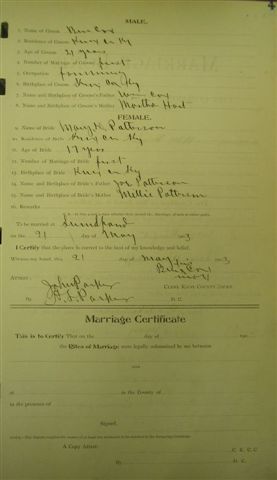 MALE.
1. Name of Groom Ben Cox
2. Residence of Groom Knox Co Ky
3. Age of Groom 21 years
4. Number of Marriage of Groom first
5. Occupation farming
6. Birthplace of Groom Knox Co Ky
7. Name and Birthplace of Groom's Father Wm Cox
8. Name and Birthplace of Groom's Mother Martha
FEMALE.
9. Name of Bride Mary K Patterson
10. Residence of Bride Knox Co Ky
11. Age of Bride 17 years
12. Number of Marriage of Bride first
13. Birthplace of Bride Knox Co Ky
14. Name and Birthplace of Bride's Father Joe Patterson
15. Name and Birthplace of Bride's Mother Millie Patterson
16. Remarks
To be married at
on the 21 day of May 1903
I Certify that the above is correct to the best of my knowledge and belief.
Witness my hand, this 21 day of May 1903
Ben Cox
mark
Attest:
John Parker
CLERK KNOX COUNTY COURT.
By Parker D. C.
Marriage Certificate
This is to Certify That on the day of 190
the Rites of Marriage were legally solemnized by me between
and
at in the County of
in the presence of
Signed,
A Copy Attest: C. K. C. C.
By D. C.